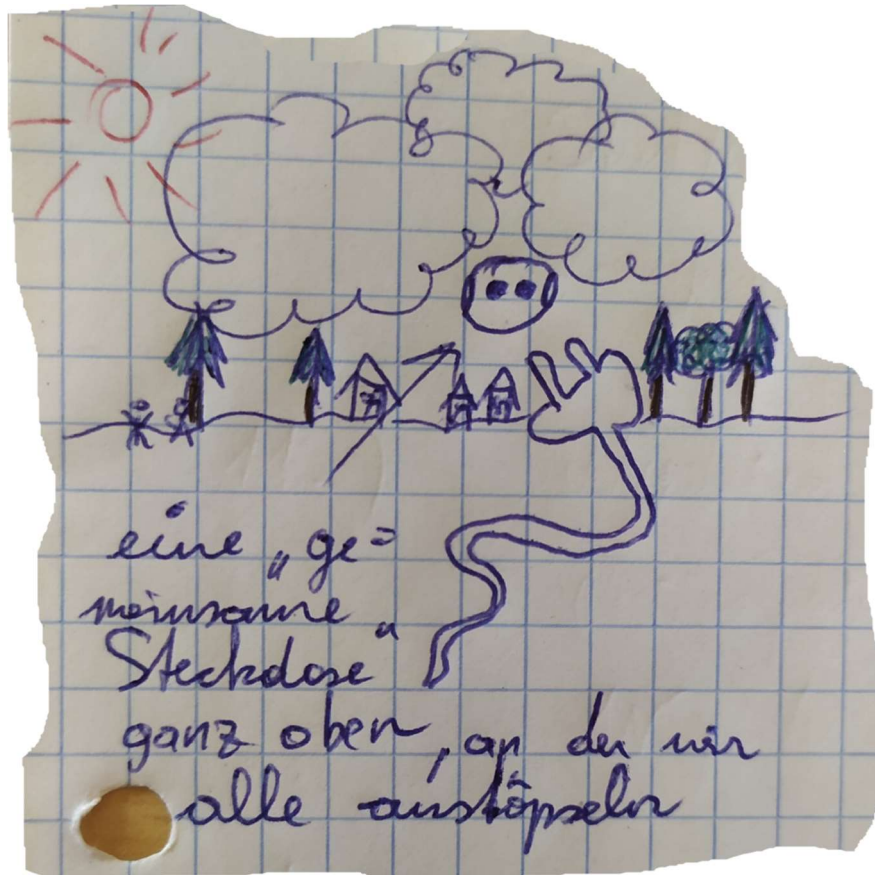 eine „ge=
meinsame
Steckdose“
ganz oben, an der wir
alle anstöpseln